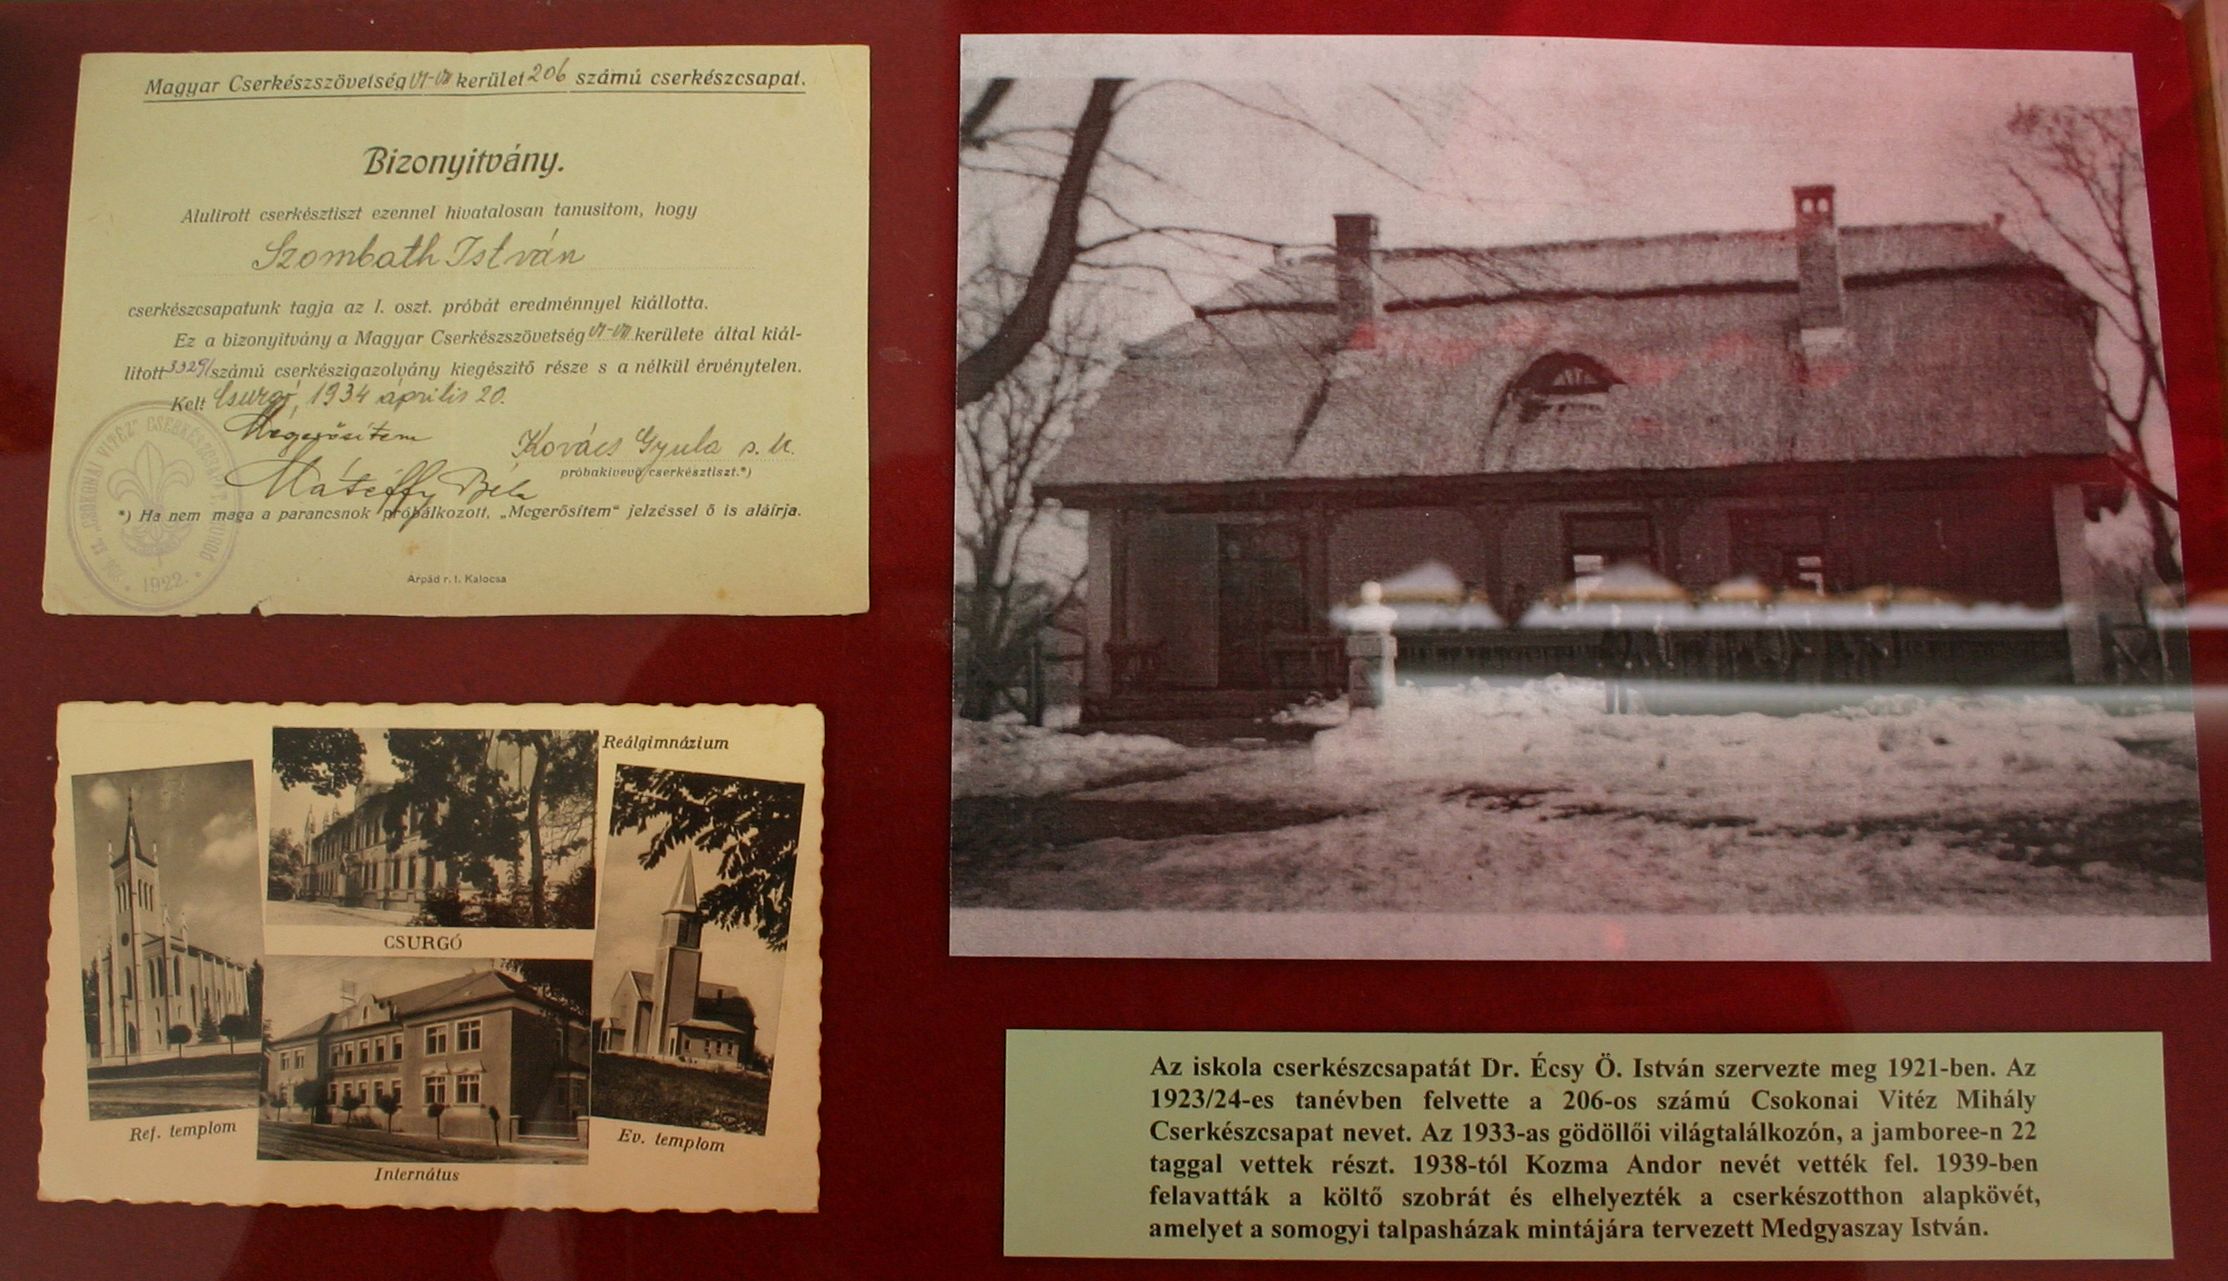 Magyar Cserkészszövetség VI-VII kerület 206 számú cserkészcsapat.
Bizonyitvány.
Alulirott cserkésztiszt ezennel hivatalosan tanusitom, hogy
Szombath István
cserkészcsapatunk tagja az I. oszt. próbát eredménnyel kiállotta.
Ez a bizonyitvány a Magyar Cserkészszövetség VI-VII kerülete által kiál-
litott 3329/ számú cserkészigazolvány kiegészitő része s a nélkül érvénytelen.
Kelt Csurgó, 1934 április 20.
Megerősítem
Kovács Gyula s. k.
próbakivevő cserkésztiszt.*)
Mátéffy Béla
*) Ha nem maga a parancsnok próbálkozott, „Megerősítem“ jelzéssel ő is aláírja.
1922.
Árpád r. t. Kalocsa
Reálgimnázium
CSURGÓ
Ref. templom
Ev. templom
Internátus
Az iskola cserkészcsapatát Dr. Écsy Ö. István szervezte meg 1921-ben. Az
1923/24-es tanévben felvette a 206-os számú Csokonai Vitéz Mihály
Cserkészcsapat nevet. Az 1933-as gödöllői világtalálkozón, a jamboree-n 22
taggal vettek részt. 1938-tól Kozma Andor nevét vették fel. 1939-ben
felavatták a költő szobrát és elhelyezték a cserkészotthon alapkövét,
amelyet a somogyi talpasházak mintájára tervezett Medgyaszay István.